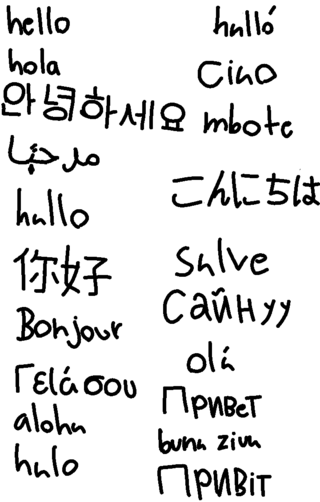 hello
hola
안녕하세요
مرحبًا
hallo
你好
Bonjour
Γειά σου
aloha
halo
halló
Ciao
mbote
こんにちは
Salve
Сайн уу
olá
Привет
buna ziua
Привіт